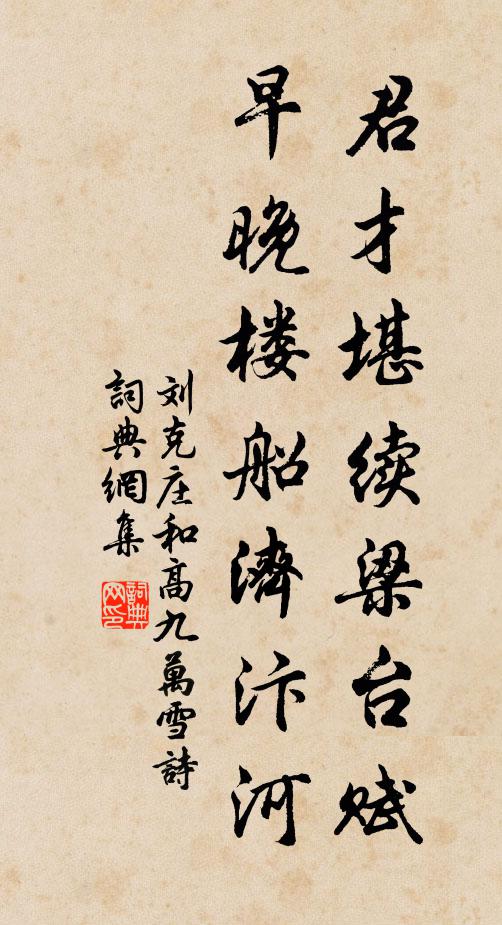 君才堪续梁台赋
早晚楼船濟汴河
刘克庄和高九萬雪詩
詞典網集
詞典
网印